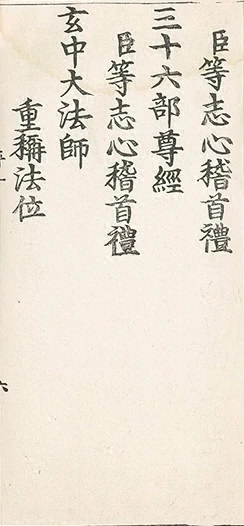 臣等志心稽首禮
三十六部尊經
臣等志心稽首禮
玄中大法師
重稱法位